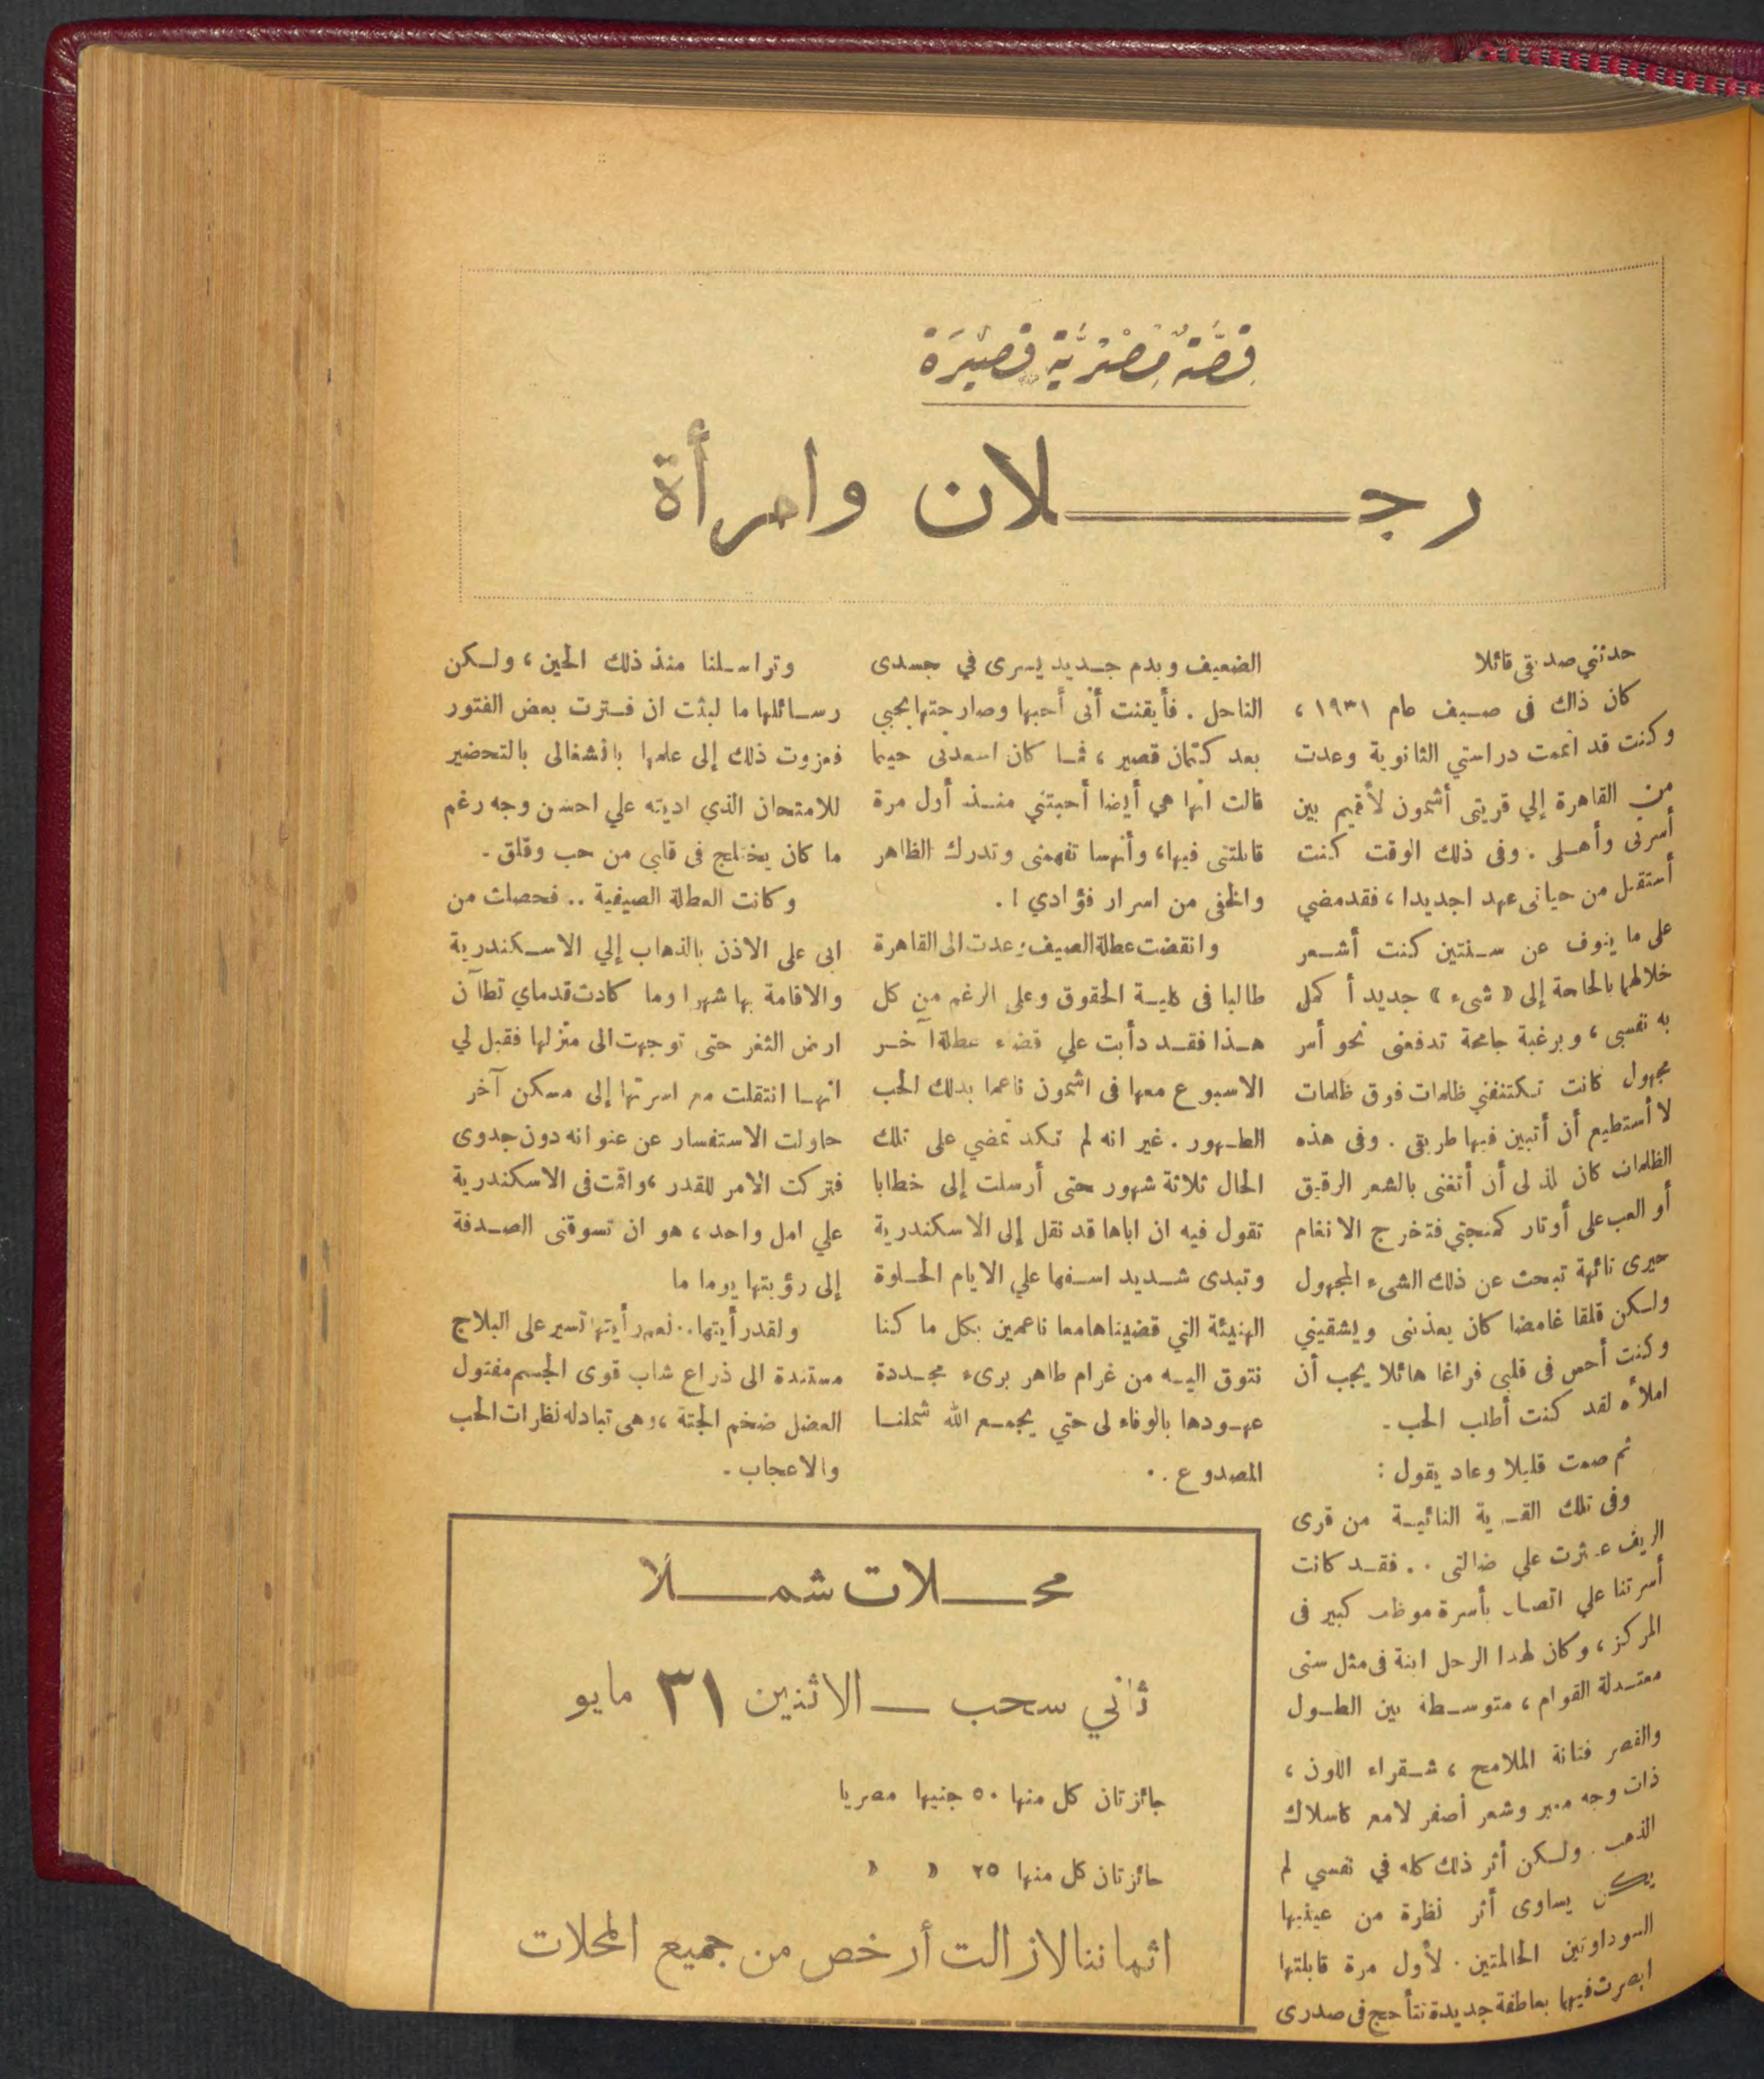 قصة مصرية قصيرة
رجلان وامرأة
حدثني صديقى قائلا
كان ذاك فى صيف عام ١٩٣١ ،
وكنت قد أتممت دراستي الثانوية وعدت
من القاهرة إلي قريتى أشمون لأقيم بين
أسرتى وأهلى . وفى ذلك الوقت كنت
أستقبل من حياتى عهد اجديدا ، فقد مضي
على ما ينوف عن سنتين كنت أشعر
خلالهما بالحاجة إلى « شىء » جديد أ كمل
به نفسى ، وبرغبة جامحة تدفعنى نحو أمر
مجهول كانت تكتنفني ظلمات فوق ظلمات
لا أستطيع أن أتبين فيها طريقى . وفى هذه
الظلمات كان لذ لى أن أتغنى بالشعر الرقيق
أو العب على أوتار كمنجتي فتخرج الانغام
حيرى تائهة تبحث عن ذلك الشىء المجهول
ولكن قلقا غامضا كان يعذبنى ويشقيني
وكنت أحس فى قلبى فراغا هائلا يجب أن
املأه لقد كنت أطلب الحب .
ثم صمت قليلا وعاد يقول :
وفى تلك القرية النائية من قرى
الريف عثرت علي ضالتى . . فقد كانت
أسرتنا علي اتصال بأسرة موظف كبير فى
المركز ، وكان لهذا الرجل ابنة فى مثل سنى
معتدلة القوام ، متوسطة بين الطول
والقصر فتانة الملامح ، شقراء اللون ،
ذات وجه منير وشعر أصفر لامع كاسلاك
الذهب . ولكن أثر ذلك كله في نفسي لم
يكن يساوى أثر نظرة من عينيها
السوداوتين الحالمتين . لأول مرة قابلتها
ابصرت فيهما بعاطفة جديدة تتأجج فى صدرى
الضعيف وبدم جديد يسرى في جسدى
الناحل . فأيقنت أنى أحبها وصارحتها بحبي
بعد كتمان قصير ، فما كان اسعدنى حينما
قالت انها هي أيضا أحبتني منذ أول مرة
قابلتنى فيها ، وأنها تفهمنى وتدرك الظاهر
والخفى من اسرار فؤادي ! .
وانقضت عطلة الصيف وعدت الى القاهرة
طالبا فى كلية الحقوق وعلى الرغم من كل
هذا فقد دأبت علي قضاء عطلة آخر
الاسبوع معها فى اشمون ناعما بذلك الحب
الطهور . غير انه لم تكد تمضي على تلك
الحال ثلاثة شهور حتى أرسلت إلى خطابا
تقول فيه ان اباها قد نقل إلى الاسكندرية
وتبدى شديد اسفها علي الايام الحلوة
الهنيئة التي قضيناها معا ناعمين بكل ما كنا
نتوق اليه من غرام طاهر برىء مجددة
عهودها بالوفاء لى حتي يجمع الله شملنا
المصدوع . .
وتراسلنا منذ ذلك الحين ، ولكن
رسائلها ما لبثت ان فترت بعض الفتور
فعزوت ذلك إلى علمها بانشغالى بالتحضير
للامتحان الذي اديته علي احسن وجه رغم
ما كان يختلج فى قلبى من حب وقلق .
وكانت العطلة الصيفية .. فحصلت من
ابى على الاذن بالذهاب إلي الاسكندرية
والاقامة بها شهرا وما كادت قدماي تطآن
ارض الثغر حتى توجهت الى منزلها فقيل لي
انها انتقلت مع اسرتها إلى مسكن آخر
حاولت الاستفسار عن عنوانه دون جدوى
فتركت الامر للقدر ، واقمت فى الاسكندرية
علي امل واحد ، هو ان تسوقنى الصدفة
إلى رؤيتها يوما ما
ولقد رأيتها .. نعم رأيتها تسير على البلاج
مستندة الى ذراع شاب قوى الجسم مفتول
العضل ضخم الجثة ، وهى تبادله نظرات الحب
والاعجاب .
محلات شملا
ثاني سحب — الاثنين ٣١ مايو
جائزتان كل منها ٥٠ جنيها مصريا
جائزتان كل منها ٢٥ « «
اثماننا لازالت أرخص من جميع المحلات